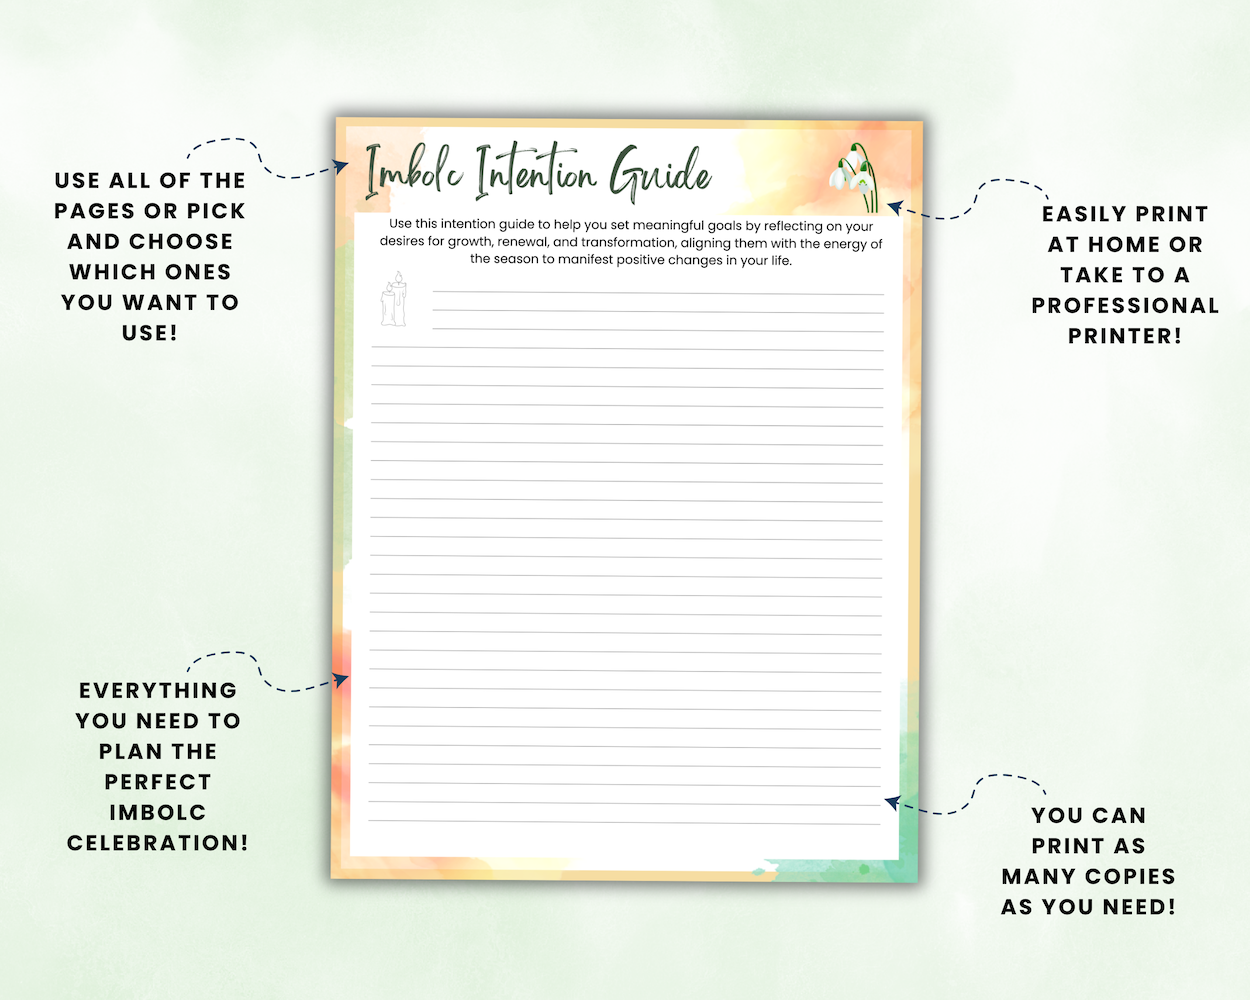 Imbolc Intention Guide
Use this intention guide to help you set meaningful goals by reflecting on your
desires for growth, renewal, and transformation, aligning them with the energy of
the season to manifest positive changes in your life.
USE ALL OF THE
PAGES OR PICK
AND CHOOSE
WHICH ONES
YOU WANT TO
USE!
EASILY PRINT
AT HOME OR
TAKE TO A
PROFESSIONAL
PRINTER!
EVERYTHING
YOU NEED TO
PLAN THE
PERFECT
IMBOLC
CELEBRATION!
YOU CAN
PRINT AS
MANY COPIES
AS YOU NEED!